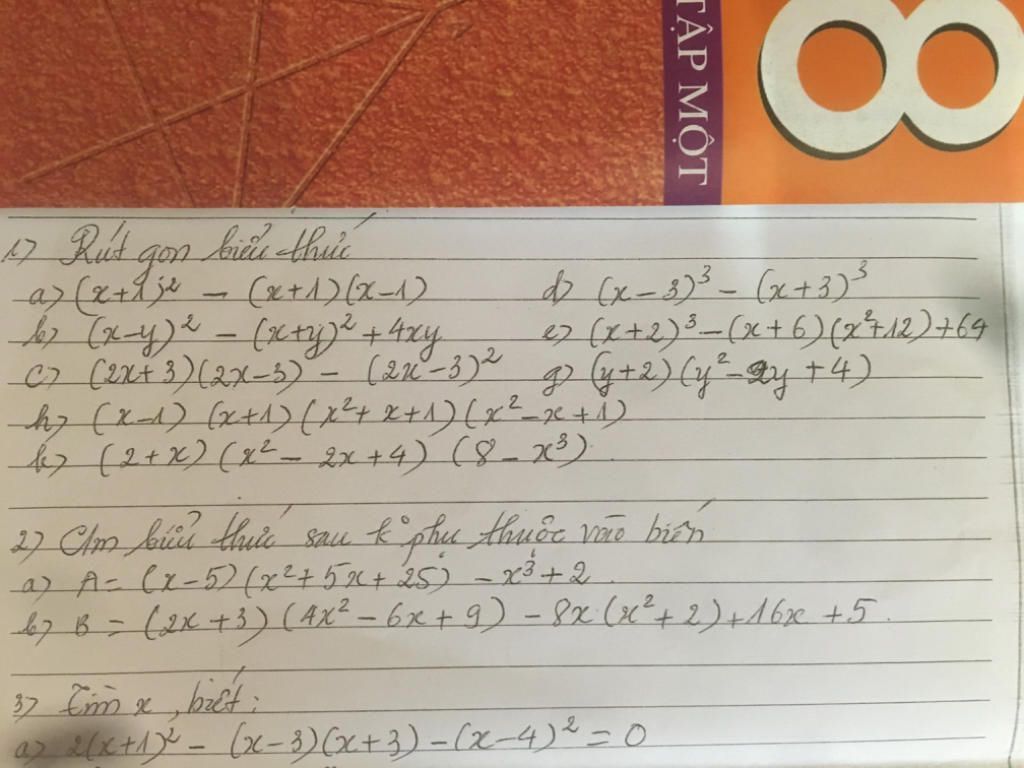 TẬP MỘT
8
1) Rút gọn biểu thức
a) (x+1)² - (x+1)(x-1) d) (x-3)³ - (x+3)³
b) (x-y)² - (x+y)² + 4xy e) (x+2)³ - (x+6)(x²+12) + 64
c) (2x+3)(2x-3) - (2x-3)² g) (y+2)(y²-2y+4)
h) (x-1)(x+1)(x²+x+1)(x²-x+1)
k) (2+x)(x²-2x+4)(8-x³)
2) Cm biểu thức sau k° phụ thuộc vào biến
a) A = (x-5)(x²+5x+25) - x³ + 2
b) B = (2x+3)(4x²-6x+9) - 8x(x²+2) + 16x + 5.
3) Tìm x, biết:
a) 2(x+1)² - (x-3)(x+3) - (x-4)² = 0